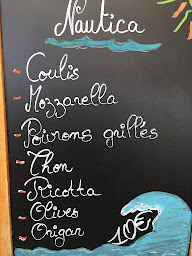 Nautica
Coulis
Mozzarella
Poivrons grillés
Thon
Ricotta
Olives
Origan
10€